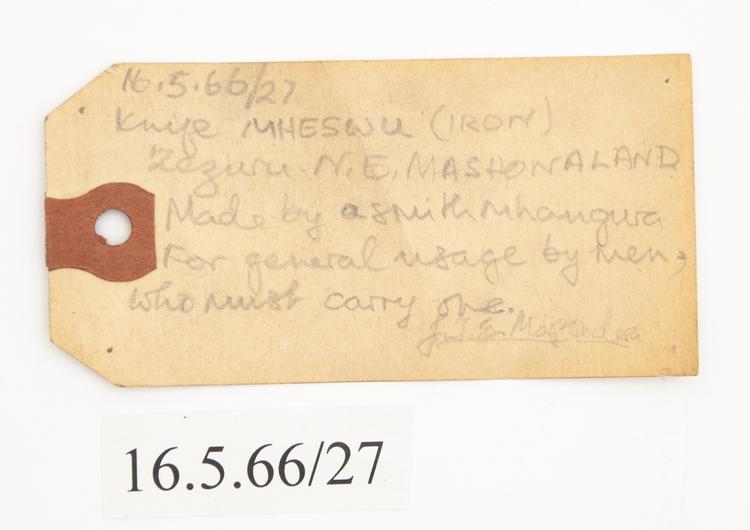 16.5.66/27
Knife MHESWU (IRON)
Zezuru N.E. MASHONALAND
Made by a smith Mhangwa
For general usage by men,
who must carry one.
J.T.E.
16.5.66/27